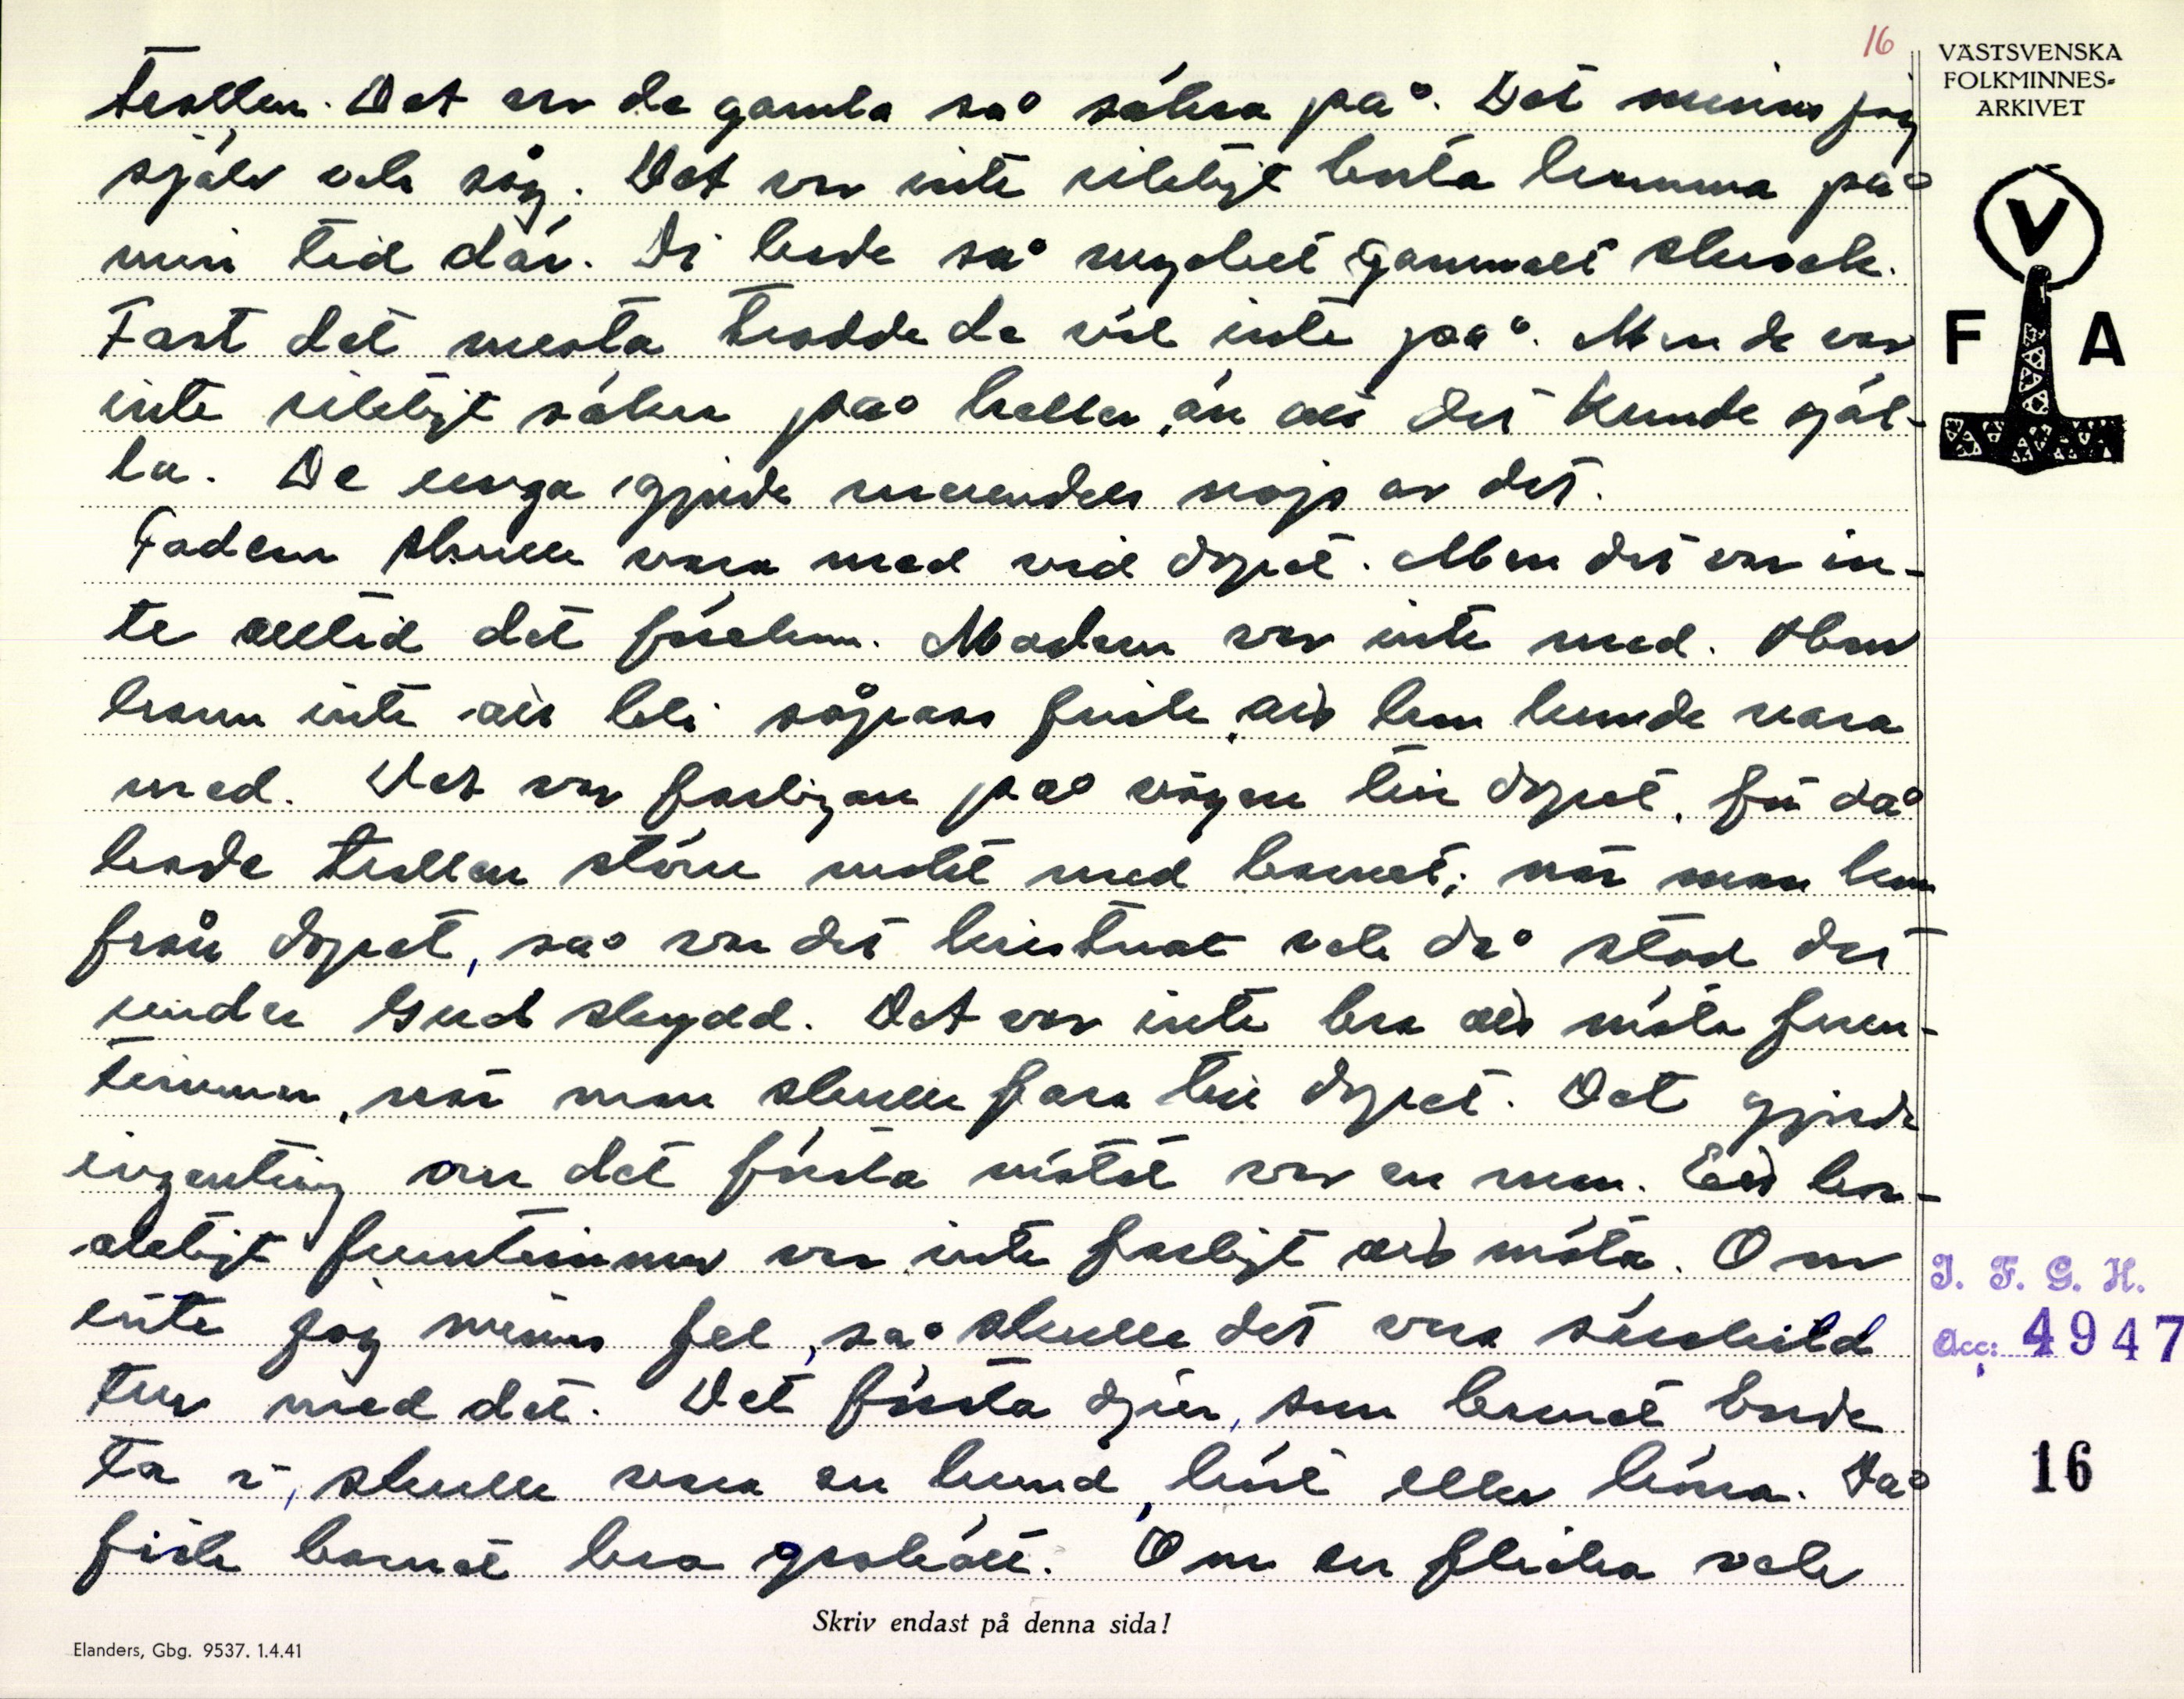 16
VÄSTSVENSKA
FOLKMINNES-
ARKIVET
V
F A
trollen. Det var de gamla så säkra på. Det minns jag
själv och såg. Det var inte riktigt borta hemma på
min tid där. Di hade så mycket gammalt skrock.
Fast det mesta trodde de väl inte på. Men de var
inte riktigt säkra på heller, än att det kunde gäl-
la. De unga gjorde merendels nojs av det.
Fadern skulle vara med vid dopet. Men det var in-
te alltid det förekom. Modern var inte med. Hon
hann inte att bli såpass frisk, att hon kunde vara
med. Det var farligare på vägen till dopet, för då
hade trollen större makt med barnet; när man kom
från dopet, så var det kristnat och då stod det
under Gud skydd. Det var inte bra att möta fruen-
timmer, när man skulle fara till dopet. Det gjorde
ingenting om det första mötet var en man. Ett ber-
aktigt fruntimmer var inte farligt att möta. Om
inte jag minns fel, så skulle det vara särskild
tur med det. Det första djur, som barnet borde
ta i, skulle vara en hund, häst eller björn. Då
fick barnet bra grokött. Om en flicka och
I. F. G. H.
Acc: 4947
16
Skriv endast på denna sida!
Elanders, Gbg. 9537. 1.4.41